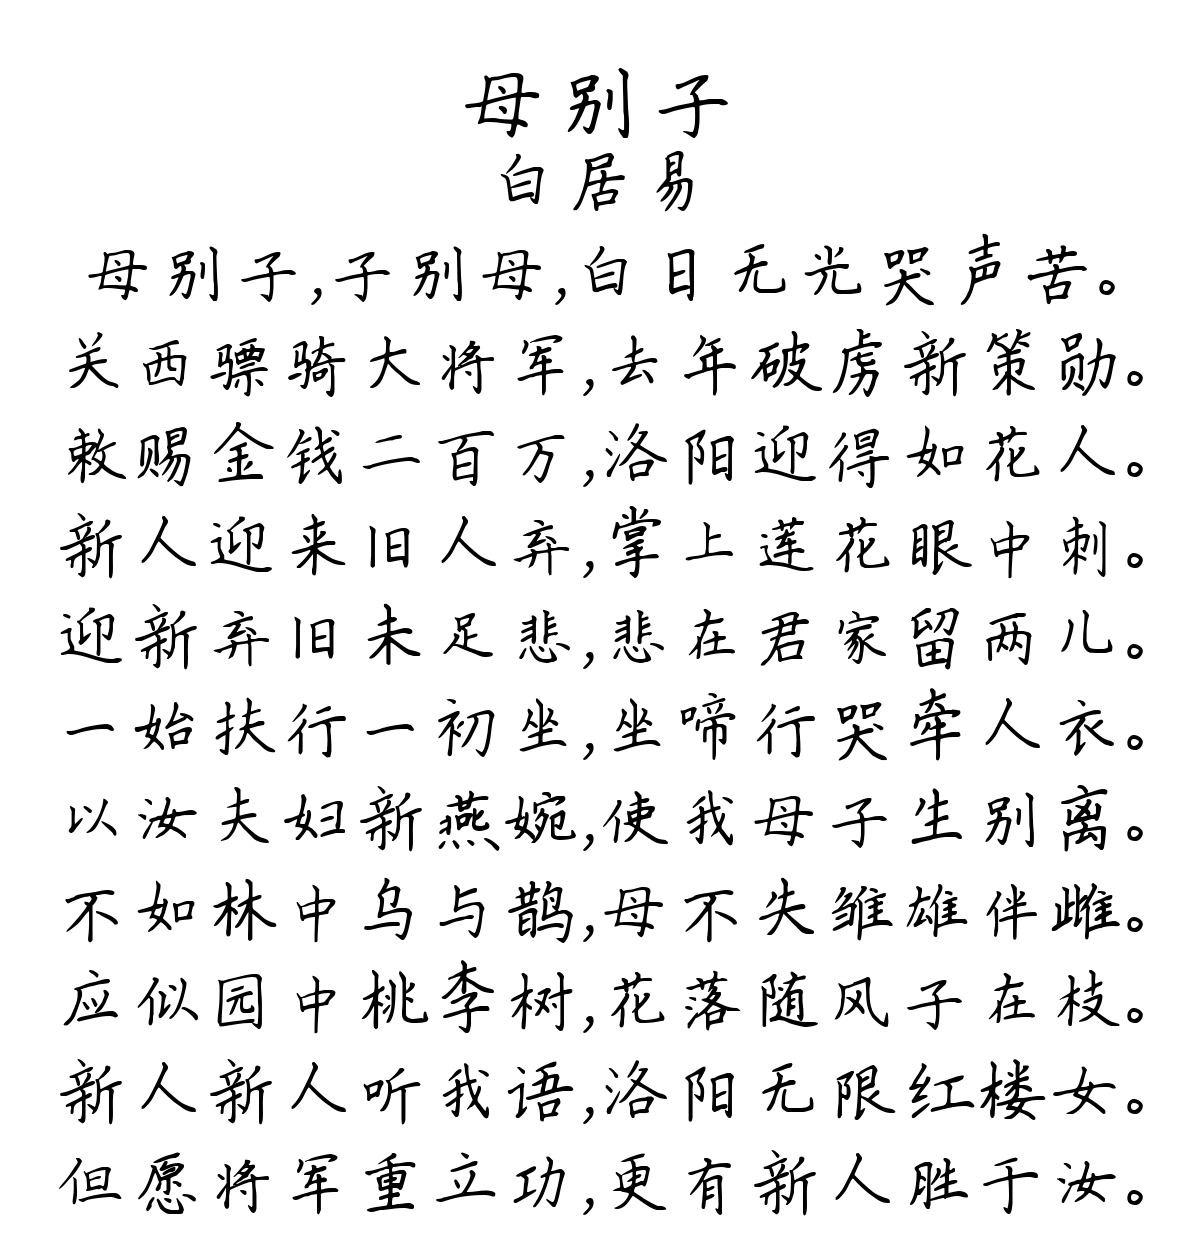 母别子
白居易
母别子,子别母,白日无光哭声苦。
关西骠骑大将军,去年破虏新策勋。
敕赐金钱二百万,洛阳迎得如花人。
新人迎来旧人弃,掌上莲花眼中刺。
迎新弃旧未足悲,悲在君家留两儿。
一始扶行一初坐,坐啼行哭牵人衣。
以汝夫妇新燕婉,使我母子生别离。
不如林中乌与鹊,母不失雏雄伴雌。
应似园中桃李树,花落随风子在枝。
新人新人听我语,洛阳无限红楼女。
但愿将军重立功,更有新人胜于汝。